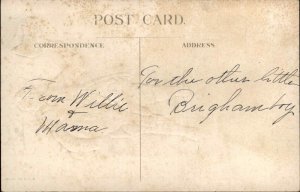 POST CARD.
CORRESPONDENCE
ADDRESS.
From Willie
&
Mama
For the other little
Brigham boy